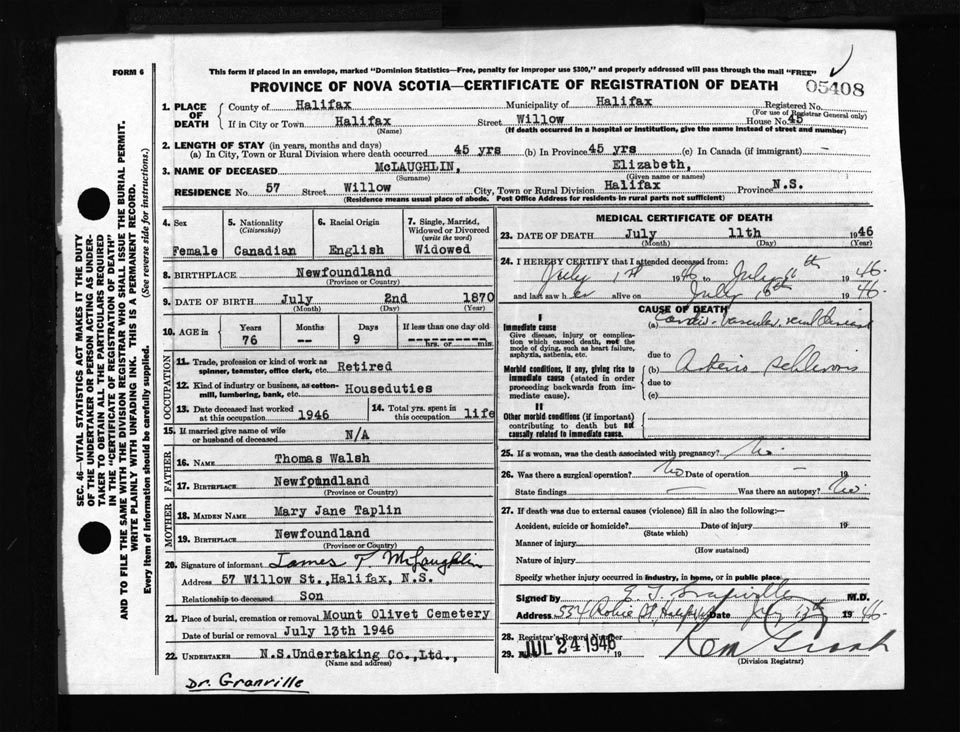 FORM 6
This form if placed in an envelope, marked "Dominion Statistics—Free, penalty for improper use $300," and properly addressed will pass through the mail "FREE"
PROVINCE OF NOVA SCOTIA—CERTIFICATE OF REGISTRATION OF DEATH
05408
1. PLACE OF DEATH
County of Halifax Municipality of Halifax Registered No.
(For use of Registrar General only)
If in City or Town Halifax Street Willow House No. 45
(Name) (If death occurred in a hospital or institution, give the name instead of street and number)
2. LENGTH OF STAY (in years, months and days)
(a) In City, Town or Rural Division where death occurred 45 yrs (b) In Province 45 yrs (c) In Canada (if immigrant) —
3. NAME OF DECEASED McLAUGHLIN, Elizabeth,
(Surname) (Given name or names)
RESIDENCE No. 57 Street Willow City, Town or Rural Division Halifax Province N.S.
(Residence means usual place of abode. Post Office Address for residents in rural parts not sufficient)
4. Sex
Female
5. Nationality
(Citizenship)
Canadian
6. Racial Origin
English
7. Single, Married, Widowed or Divorced
(write the word)
Widowed
8. BIRTHPLACE Newfoundland
(Province or Country)
9. DATE OF BIRTH July 2nd 1870
(Month) (Day) (Year)
10. AGE in Years Months Days If less than one day old
76 -- 9 hrs. or min.
OCCUPATION
11. Trade, profession or kind of work as spinner, teamster, office clerk, etc. Retired
12. Kind of industry or business, as cotton-mill, lumbering, bank, etc. Houseduties
13. Date deceased last worked at this occupation 1946
14. Total yrs. spent in this occupation life
15. If married give name of wife or husband of deceased N/A
FATHER
16. NAME Thomas Walsh
17. BIRTHPLACE Newfoundland
(Province or Country)
MOTHER
18. MAIDEN NAME Mary Jane Taplin
19. BIRTHPLACE Newfoundland
(Province or Country)
20. Signature of informant James P. McLaughlin
Address 57 Willow St., Halifax, N.S.
Relationship to deceased Son
21. Place of burial, cremation or removal Mount Olivet Cemetery
Date of burial or removal July 13th 1946
22. UNDERTAKER N.S.Undertaking Co.,Ltd.,
(Name and address)
Dr. Granville
MEDICAL CERTIFICATE OF DEATH
23. DATE OF DEATH July 11th 1946
(Month) (Day)
24. I HEREBY CERTIFY that I attended deceased from:
July 1st 1946 to July 1946.
and last saw her alive on July 1946.
CAUSE OF DEATH
I
Immediate cause
Give disease, injury or complication which caused death, not the mode of dying, such as heart failure, asphyxia, asthenia, etc.
(a) Cardio-Vascular, renal disease
due to
Morbid conditions, if any, giving rise to immediate cause (stated in order proceeding backwards from immediate cause).
(b) Arterio schlerosis
due to
(c)
II
Other morbid conditions (if important) contributing to death but not causally related to immediate cause.
25. If a woman, was the death associated with pregnancy? No.
26. Was there a surgical operation? No Date of operation — 19
State findings — Was there an autopsy? No.
27. If death was due to external causes (violence) fill in also the following:—
Accident, suicide or homicide? Date of injury 19
(State which)
Manner of injury
(How sustained)
Nature of injury
Specify whether injury occurred in industry, in home, or in public place
Signed by E. J. Granville M.D.
Address 534 Robie St, Halifax Date July 12th 1946.
28. Registrar's Record Number
29. JUL 24 1946 19
(Division Registrar)
SEC. 46—VITAL STATISTICS ACT MAKES IT THE DUTY
OF THE UNDERTAKER OR PERSON ACTING AS UNDER-
TAKER TO OBTAIN ALL THE PARTICULARS REQUIRED
IN THE "CERTIFICATE OF REGISTRATION OF DEATH"
AND TO FILE THE SAME WITH THE DIVISION REGISTRAR WHO SHALL ISSUE THE BURIAL PERMIT.
WRITE PLAINLY WITH UNFADING INK. THIS IS A PERMANENT RECORD.
Every item of information should be carefully supplied. (See reverse side for instructions.)